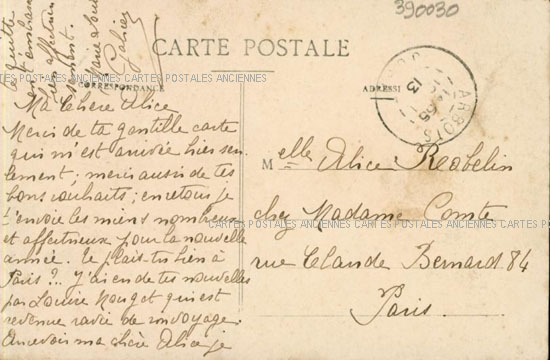 390030
CARTE POSTALE
CARTES POSTALES ANCIENNES CARTES POSTALES ANCIENNES CARTES POSTALES ANCIENNES
CORRESPONDANCE
ADRESSE
ARBOIS
13
Ma Chère Alice
Merci de ta gentille carte
qui m'est arrivée hier seu-
lement ; merci aussi de tes
bons souhaits ; en retour je
t'envoie les miens nombreux
et affectueux pour la nouvelle
année. Te plais-tu bien à
Paris ?.. J'ai eu de tes nouvelles
par Louise qui est
revenue ravie de son voyage.
Au revoir ma chère Alice je
te quitte
en t'embrassant
bien affectueu-
sement.
Melle Alice
chez Madame Comte
rue Claude Bernard 84
Paris.
CARTES POSTALES ANCIENNES CARTES POSTALES ANCIENNES CARTES POSTALES